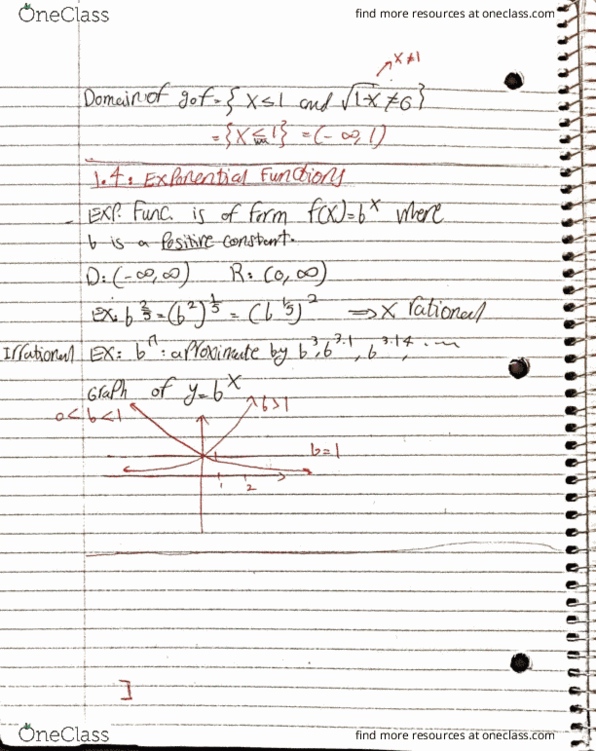 OneClass
find more resources at oneclass.com
x≠1
Domain of gof = { x ≤ 1 and √1-x ≠ 0 }
= {x ≤ 1} = (-∞, 1)
1.4: Exponential Functions
Exp. Func. is of form f(x) = b^x where
b is a positive constant.
D: (-∞, ∞) R: (0, ∞)
Ex: b^2/5 = (b^2)^1/5 = (b^1/5)^2 ⇒ x rational
Irrational Ex: b^π: aproximate by b^3, b^3.1, b^3.14, ...
Graph of y = b^x
0 < b < 1
b > 1
b = 1
1 2
OneClass
find more resources at oneclass.com